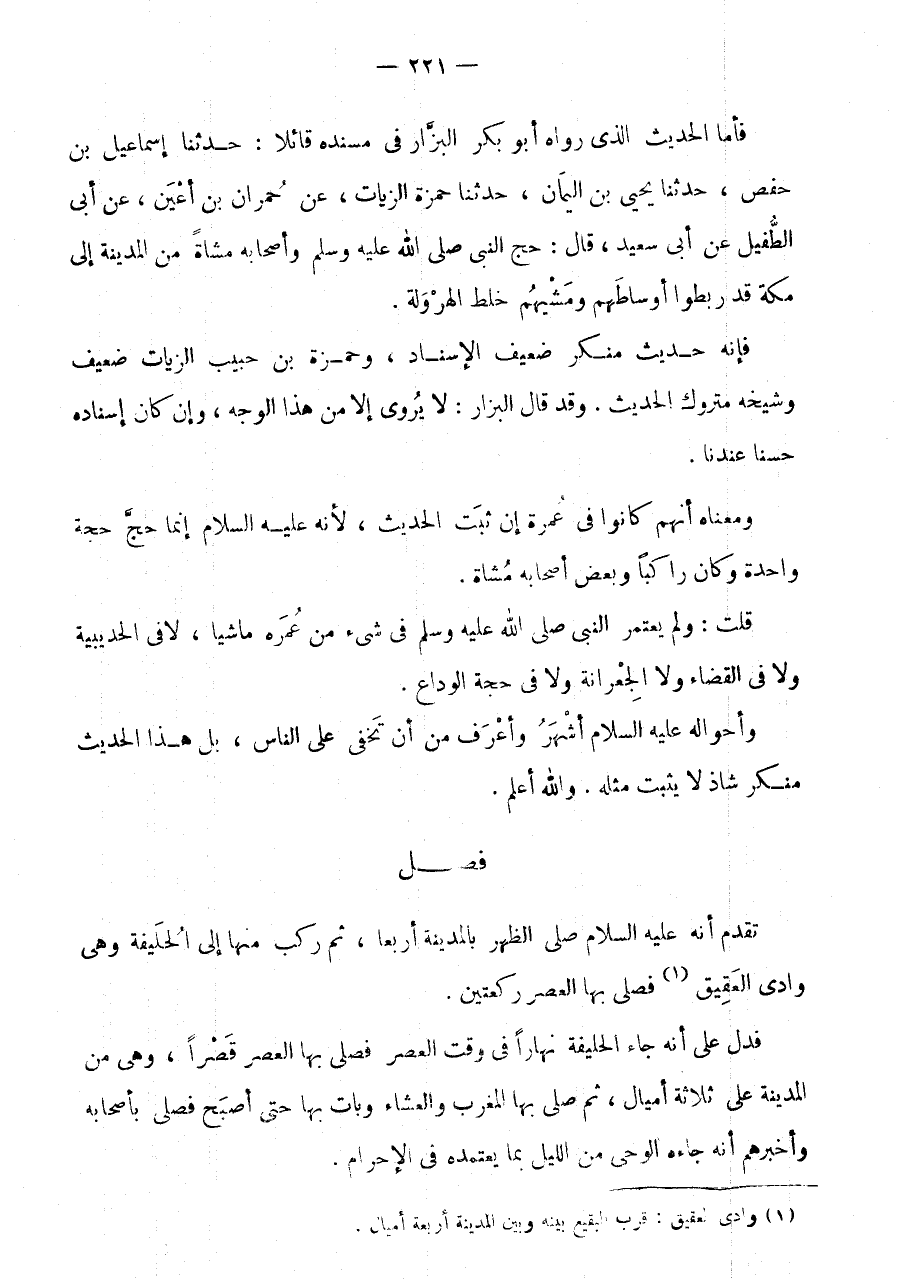 — ٢٢١ —
فأما الحديث الذى رواه أبو بكر البزَّار فى مسنده قائلا : حـدثنا إسماعيل بن
حفص ، حدثنا يحيى بن اليمَان ، حدثنا حمزة الزيات ، عن حُمران بن أعْيَن ، عن أبى
الطُّفيل عن أبى سعيد ، قال : حج النبى صلى الله عليه وسلم وأصحابه مشاةً من المدينة إلى
مكة قد ربطوا أوساطَهم ومَشْيهُم خلط الهرْوَلة .
فإنه حـديث منـكر ضعيف الإسنـاد ، وحمـزة بن حبيب الزيات ضعيف
وشيخه متروك الحديث . وقد قال البزار : لا يُروى إلا من هذا الوجه ، وإن كان إسناده
حسنا عندنا .
ومعناه أنهم كانوا فى عُمرة إن ثبَت الحديث ، لأنه عليـه السلام إنما حجَّ حجة
واحدة وكان راكباً وبعض أصحابه مُشاة .
قلت : ولم يعتمر النبى صلى الله عليه وسلم فى شىء من عُمَره ماشيا ، لا فى الحديبية
ولا فى القضاء ولا الجِعْرانة ولا فى حجة الوداع .
وأحواله عليه السلام أشْهَرُ وأعْرَف من أن تَخفى على الناس ، بل هـذا الحديث
منـكر شاذ لا يثبت مثله . والله أعلم .
فصـــل
تقدم أنه عليه السلام صلى الظهر بالمدينة أربعا ، ثم ركب منها إلى الحُلَيفة وهى
وادى العَقِيق (١) فصلى بها العصر ركعتين .
فدل على أنه جاء الحليفة نهاراً فى وقت العصر فصلى بها العصر قَصْراً ، وهى من
المدينة على ثلاثة أميال ، ثم صلى بها المغرب والعشاء وبات بها حتى أصبَح فصلى بأصحابه
وأخبرهم أنه جاءه الوحى من الليل بما يعتمده فى الإحرام .
(١) وادى العقيق : قرب البقيع بينه وبين المدينة أربعة أميال .